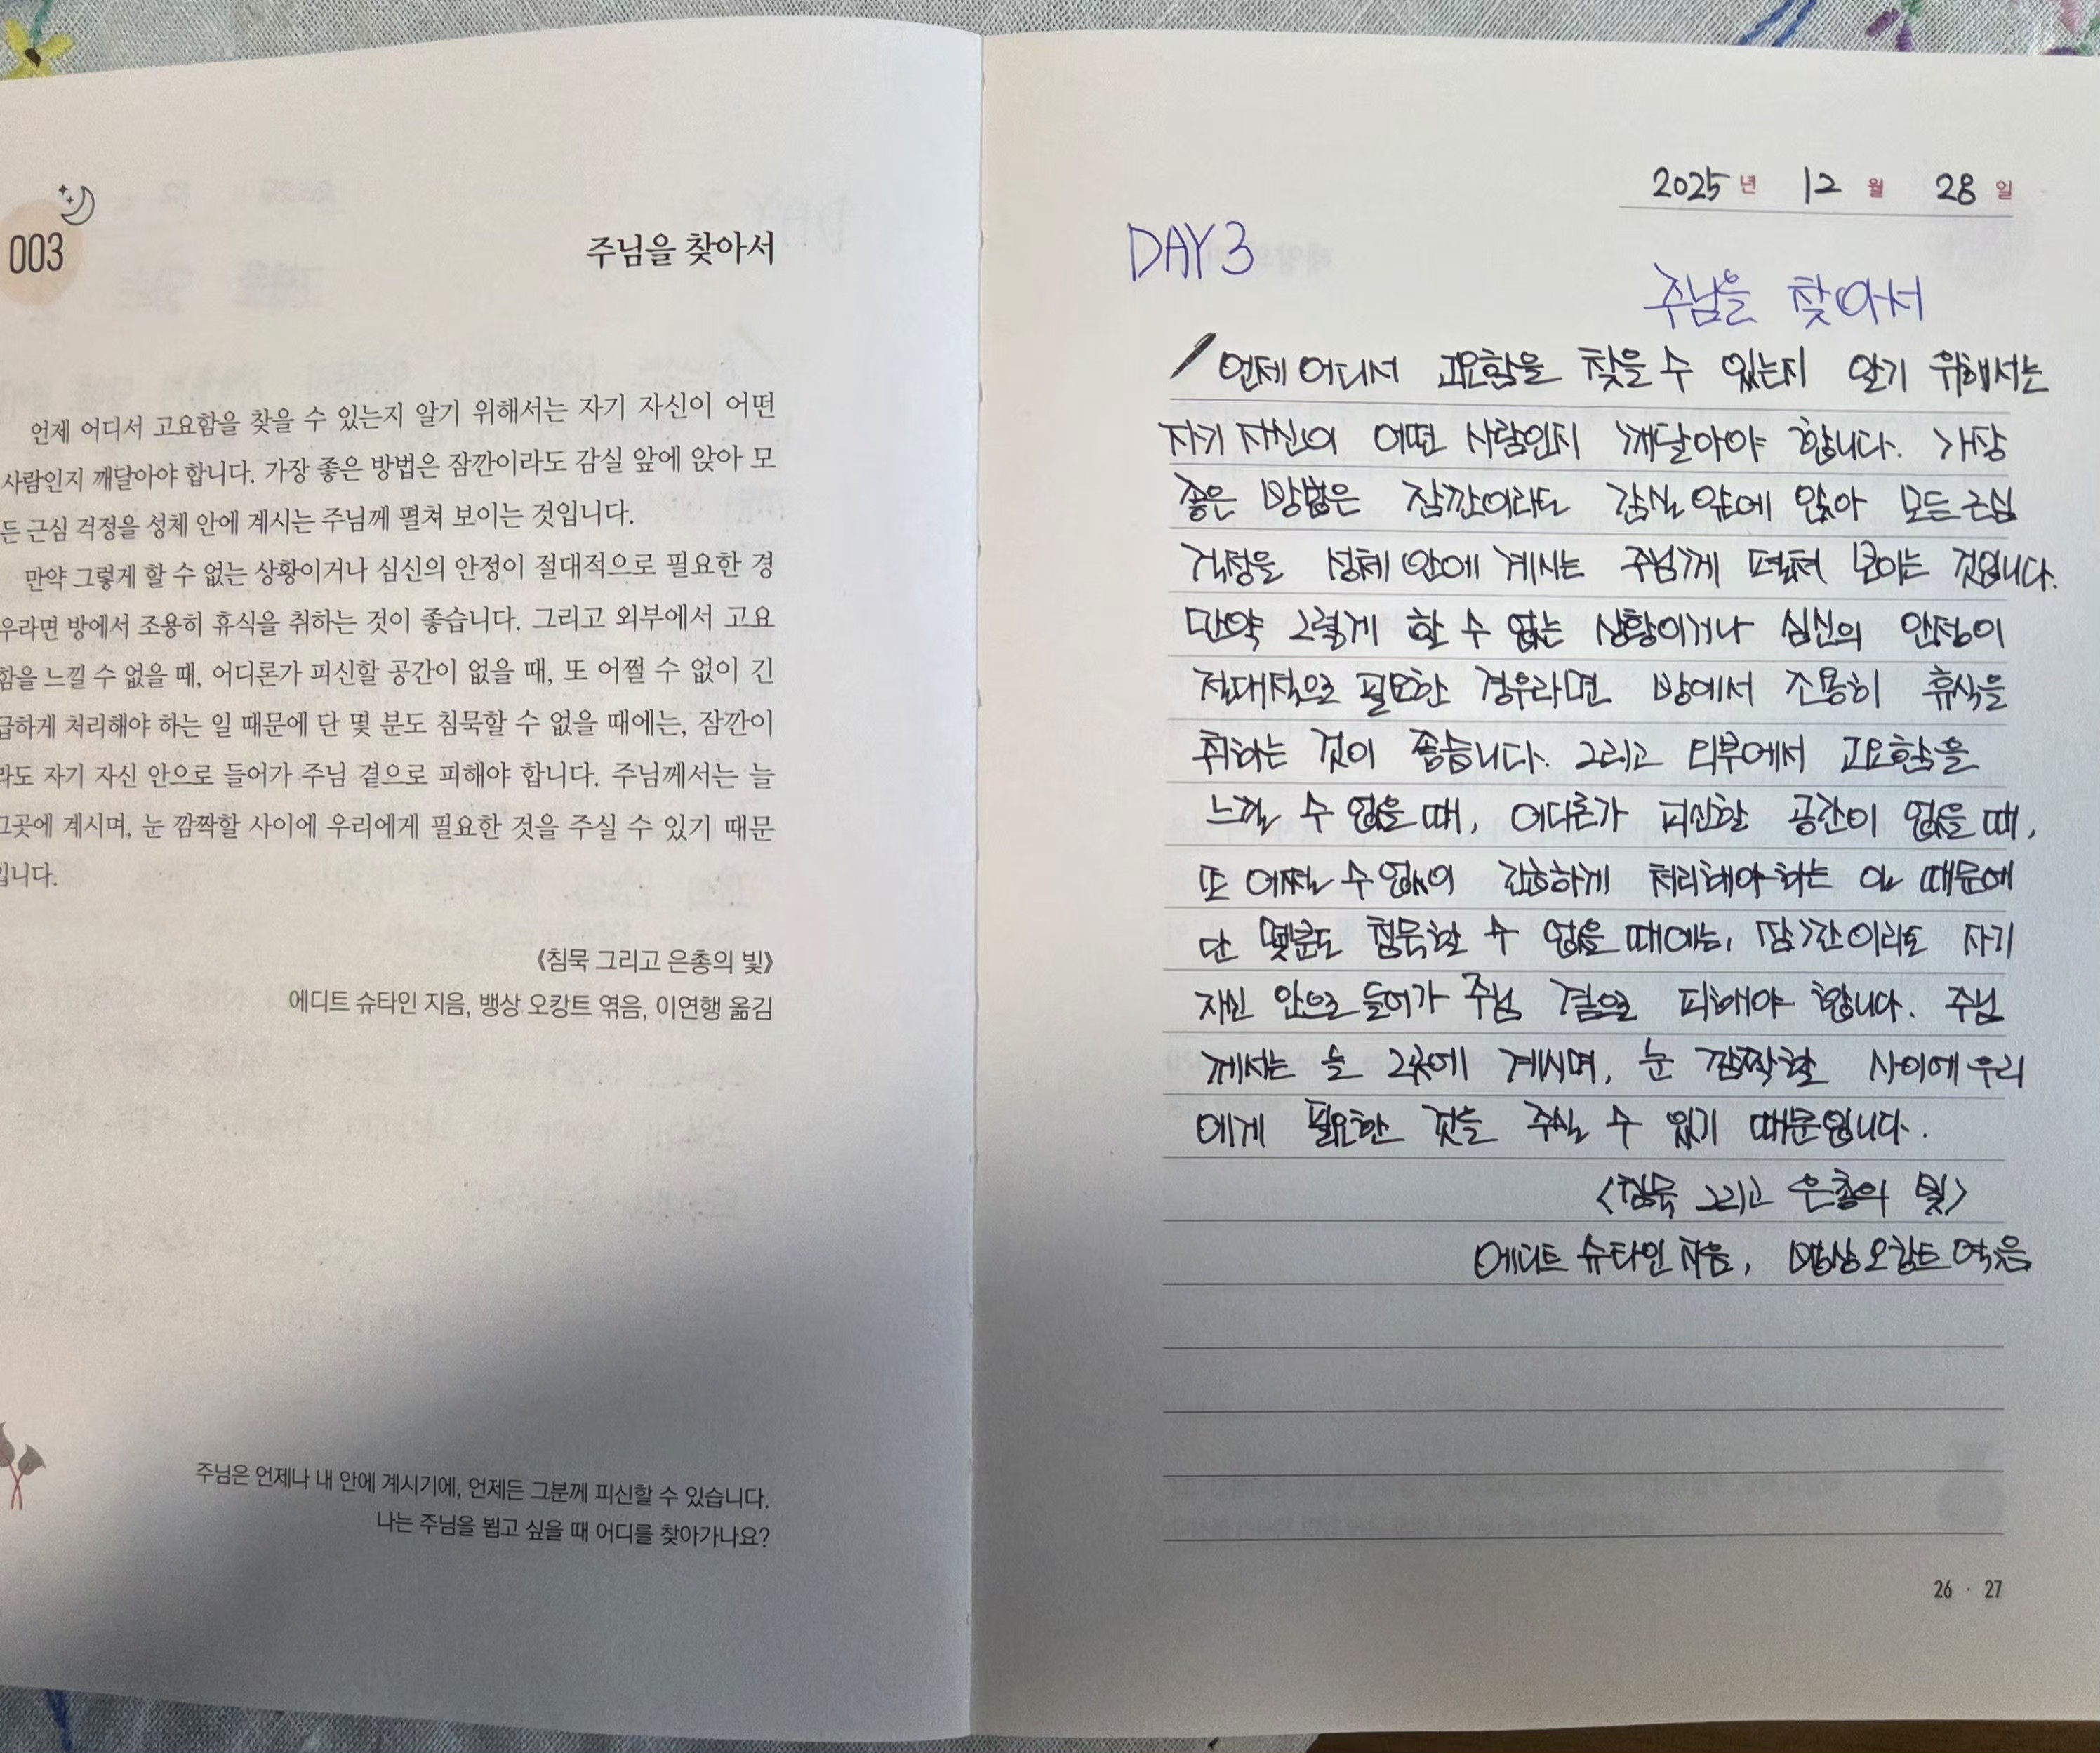 003
주님을 찾아서
언제 어디서 고요함을 찾을 수 있는지 알기 위해서는 자기 자신이 어떤
사람인지 깨달아야 합니다. 가장 좋은 방법은 잠깐이라도 감실 앞에 앉아 모
든 근심 걱정을 성체 안에 계시는 주님께 펼쳐 보이는 것입니다.
만약 그렇게 할 수 없는 상황이거나 심신의 안정이 절대적으로 필요한 경
우라면 방에서 조용히 휴식을 취하는 것이 좋습니다. 그리고 외부에서 고요
함을 느낄 수 없을 때, 어디론가 피신할 공간이 없을 때, 또 어쩔 수 없이 긴
급하게 처리해야 하는 일 때문에 단 몇 분도 침묵할 수 없을 때에는, 잠깐이
라도 자기 자신 안으로 들어가 주님 곁으로 피해야 합니다. 주님께서는 늘
그곳에 계시며, 눈 깜짝할 사이에 우리에게 필요한 것을 주실 수 있기 때문
입니다.
《침묵 그리고 은총의 빛》
에디트 슈타인 지음, 뱅상 오캉트 엮음, 이연행 옮김
주님은 언제나 내 안에 계시기에, 언제든 그분께 피신할 수 있습니다.
나는 주님을 뵙고 싶을 때 어디를 찾아가나요?
2025년 12월 28일
DAY 3
주님을 찾아서
언제 어디서 고요함을 찾을 수 있는지 알기 위해서는
자기 자신이 어떤 사람인지 깨달아야 합니다. 가장
좋은 방법은 잠깐이라도 감실 앞에 앉아 모든 근심
걱정을 성체 안에 계시는 주님께 펼쳐 보이는 것입니다.
만약 그렇게 할 수 없는 상황이거나 심신의 안정이
절대적으로 필요한 경우라면 방에서 조용히 휴식을
취하는 것이 좋습니다. 그리고 외부에서 고요함을
느낄 수 없을 때, 어디론가 피신할 공간이 없을 때,
또 어쩔 수 없이 급하게 처리해야 하는 일 때문에
단 몇분도 침묵할 수 없을 때에는, 잠깐이라도 자기
자신 안으로 들어가 주님 곁으로 피해야 합니다. 주님
께서는 늘 그곳에 계시며, 눈 깜짝할 사이에 우리
에게 필요한 것을 주실 수 있기 때문입니다.
<침묵 그리고 은총의 빛>
에디트 슈타인 지음, 뱅상 오캉트 엮음
26 · 27